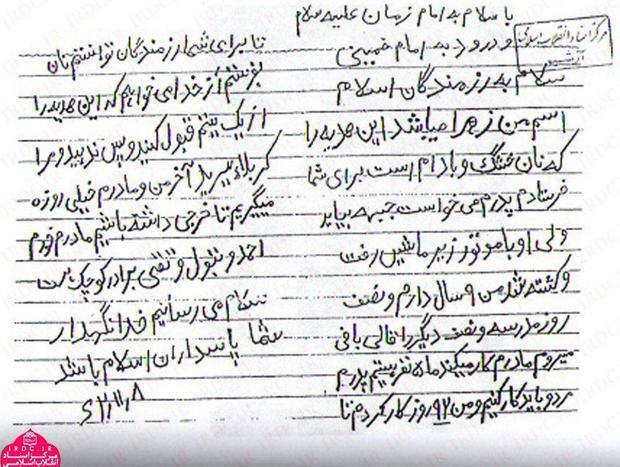 با سلام به امام زمان علیه سلام
و درود به امام خمینی
سلام به رزمندگان اسلام
اسم من زهرا میباشد این هدیه را
که نان خشک و بادام است برای شما
فرستادم پدرم می خواست جبهه بیاید
ولی او با موتور زیر ماشین رفت
و کشته شد من ۹ سال دارم و نصف
روز مدرسه و نصف دیگر را قالی بافی
میروم مادرم کار میکند ما ۵ نفر هستیم پدرم
مرد و باید کار کنیم و من ۹۲ روز کار کردم تا
تا برای شما رزمندگان توانستم نان
بفرستم از خدا می خواهم که این هدیه را
از یک یتیم قبول کنید و پس ندهید و مرا
کربلا ببرید آخر من و مادرم خیلی روزه
میگیریم تا خرجی داشته باشیم مادرم خودم
احمد و بتول و تقی برادر کوچک است
سلام می رسانیم خدا نگهدار
شما پاسداران اسلام باشد
مرکز اسناد انقلاب اسلامی
آرشیو
IRDC.IR
مرکز اسناد
انقلاب اسلامی